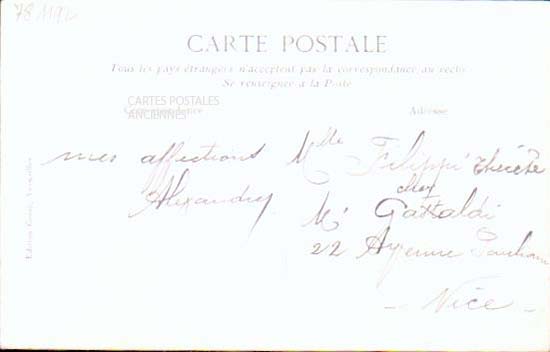 78 1192
CARTE POSTALE
Tous les pays étrangers n'acceptent pas la correspondance au recto
Se renseigner à la Poste
CARTES POSTALES
ANCIENNES
Correspondance
Adresse
mes affections
Alexandry
Mlle Filippi Thérèse
chez
Mr Gastaldi
22 Avenue
- Nice -